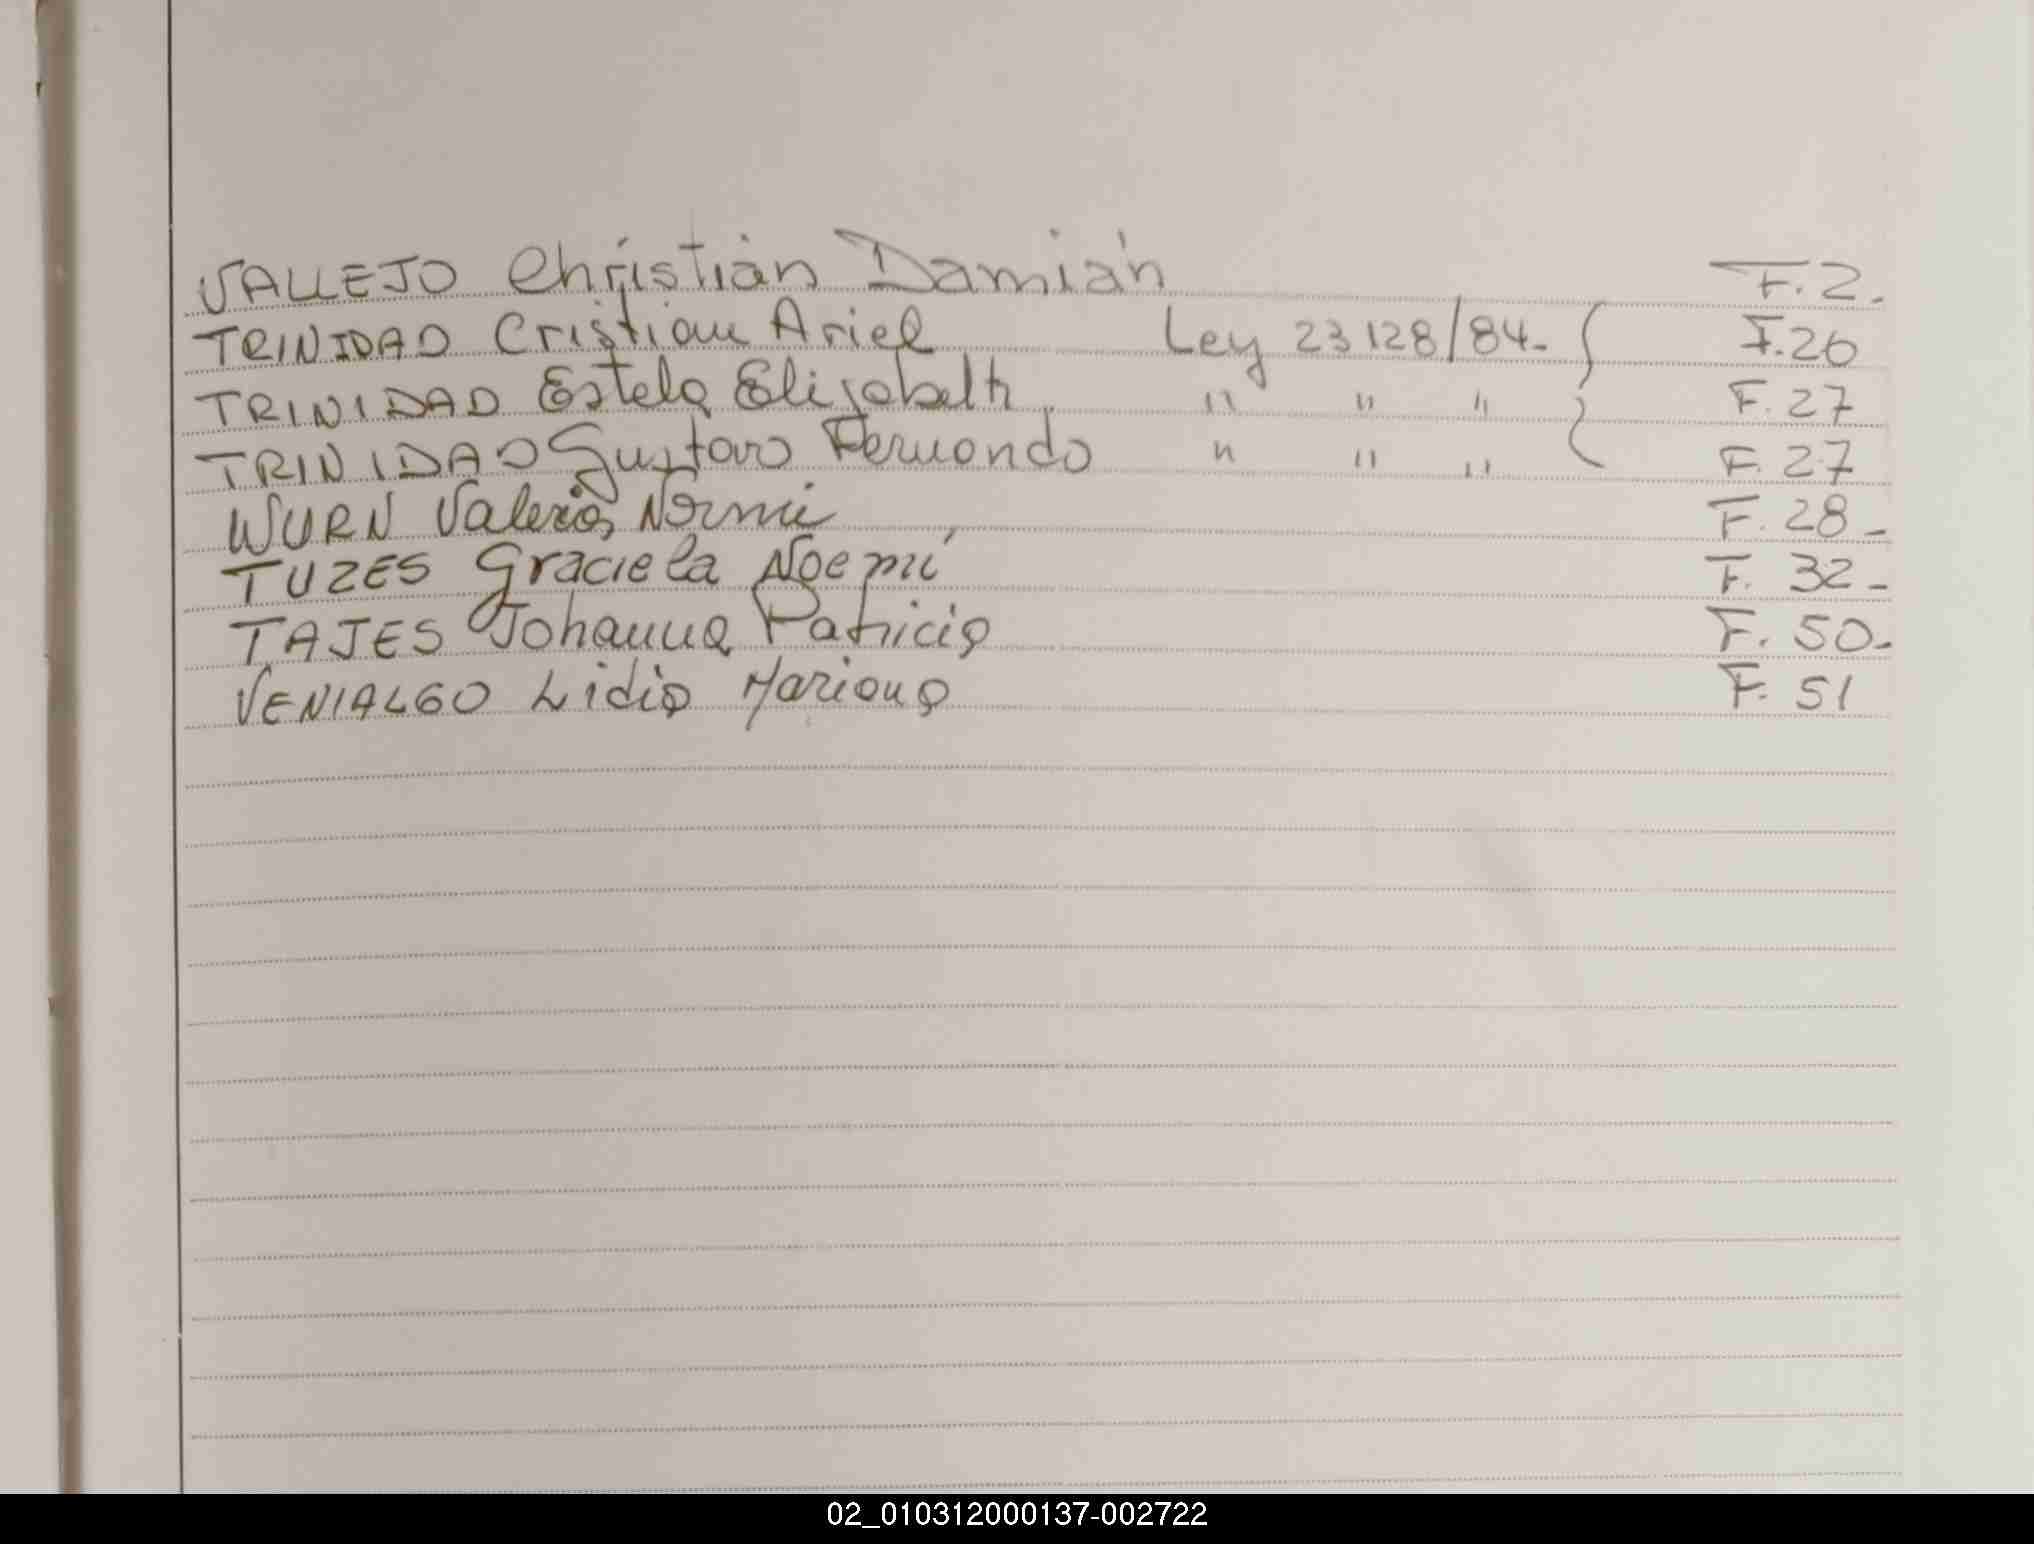 VALLEJO Christián Damián F. 2.
TRINIDAD Cristian Ariel Ley 23128/84. { F. 26
TRINIDAD Estela Elizabeth " " " { F. 27
TRINIDAD Gustavo Fernando " " " F. 27
WURN Valeria Noemi F. 28 -
TUZES Graciela Noemí F. 32 -
TAJES Johanna Patricia F. 50 -
VENIALGO Lidia Mariana F. 51
02_010312000137-002722